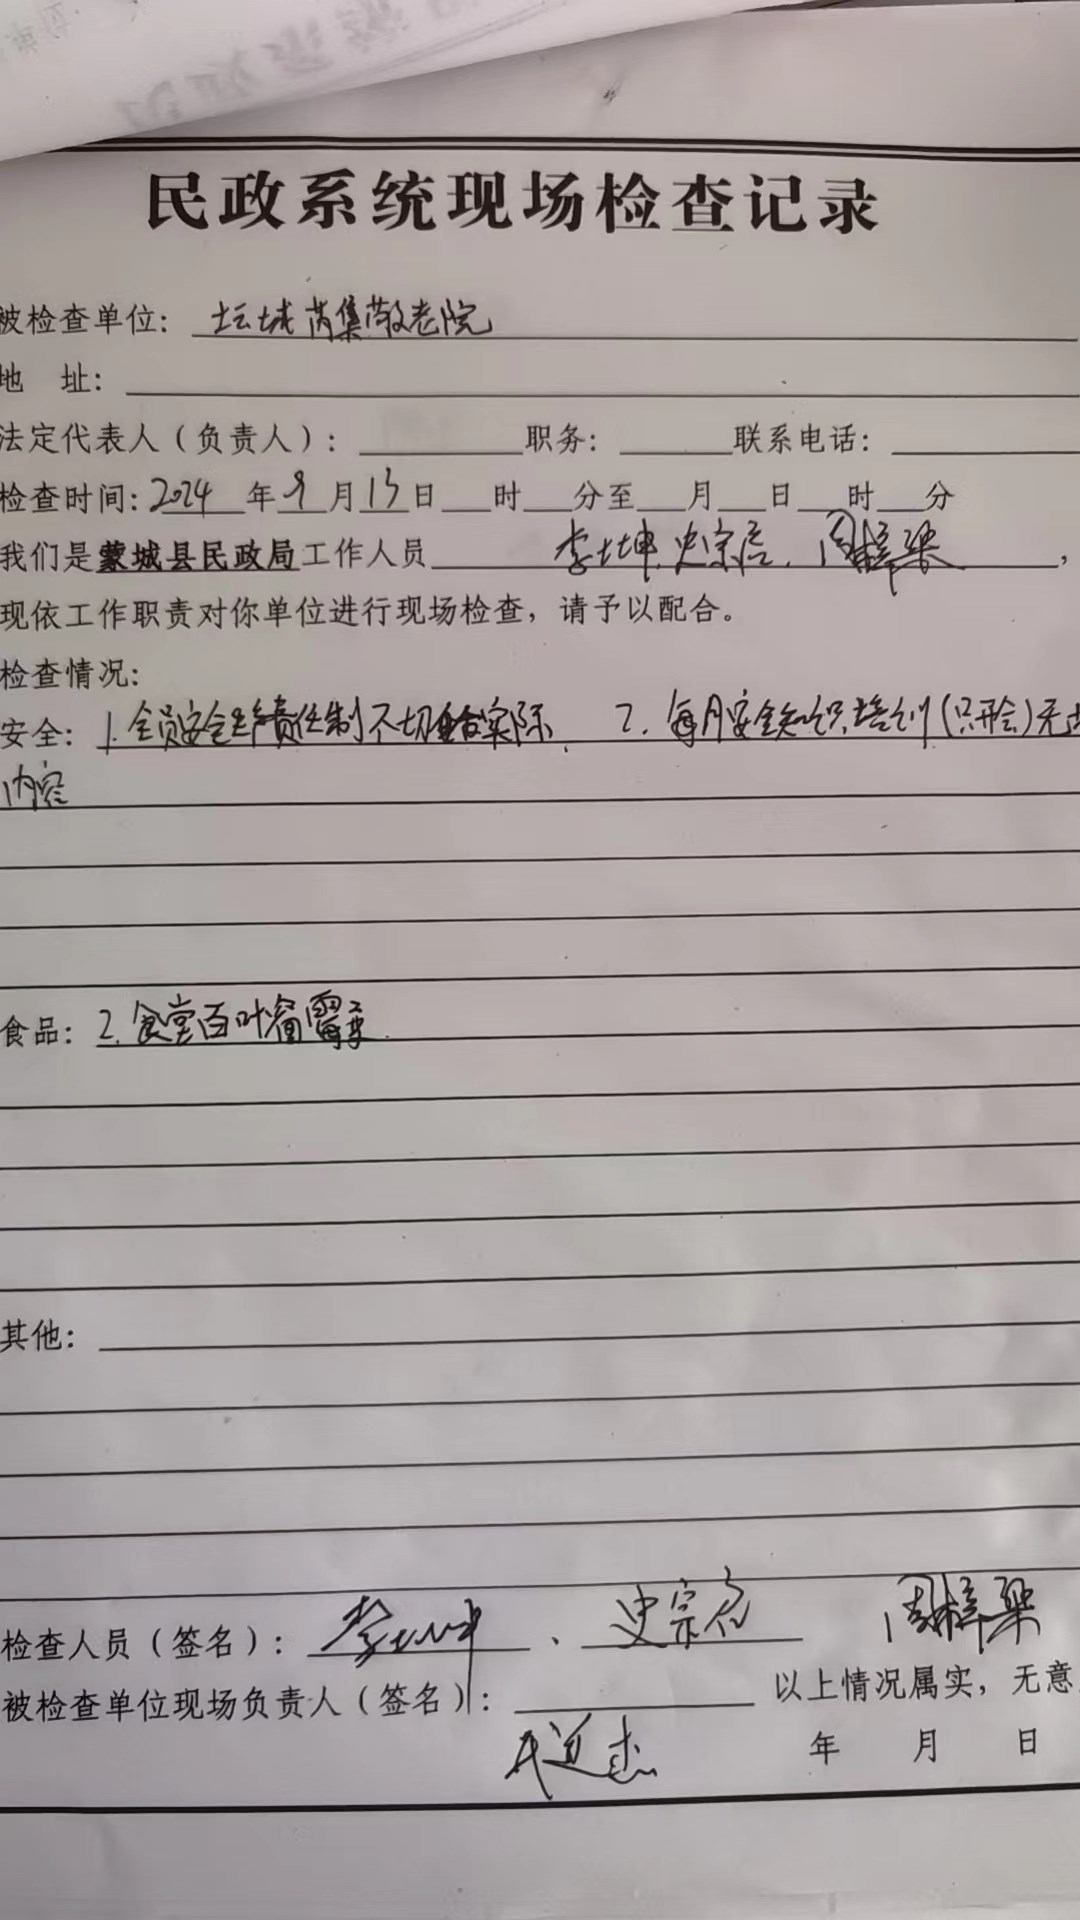 民政系统现场检查记录
被检查单位：坛城芮集敬老院
地 址：
法定代表人（负责人）： 职务： 联系电话：
检查时间：2024年9月13日 时 分至 月 日 时 分
我们是蒙城县民政局工作人员 李坤、史宗信、周梓梁，
现依工作职责对你单位进行现场检查，请予以配合。
检查情况：
安全：1.全员安全生产责任制不切合实际 2.每月安全知识培训(只开会)无
内容
食品：2.食堂百叶窗霉变.
其他：
检查人员（签名）： 、史宗信 周梓梁
被检查单位现场负责人（签名）： 以上情况属实，无意
年 月 日